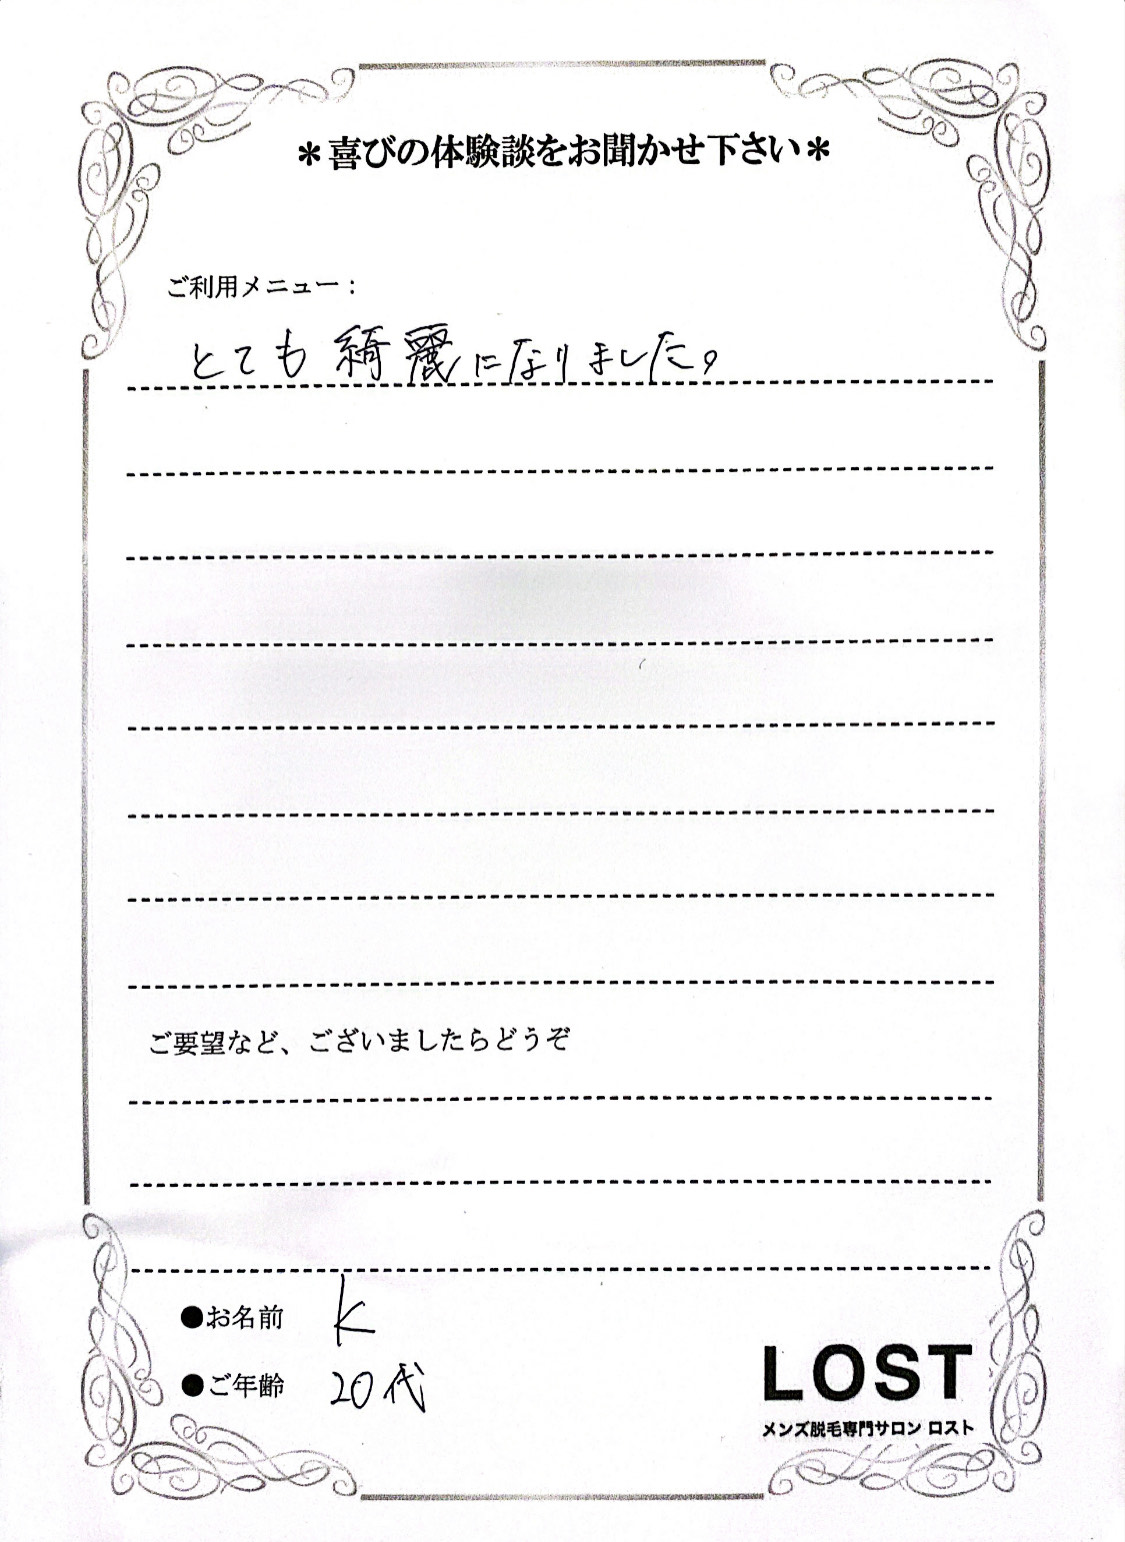 ＊喜びの体験談をお聞かせ下さい＊
ご利用メニュー：
とても綺麗になりました。
ご要望など、ございましたらどうぞ
●お名前 K
●ご年齢 20代
LOST
メンズ脱毛専門サロン ロスト